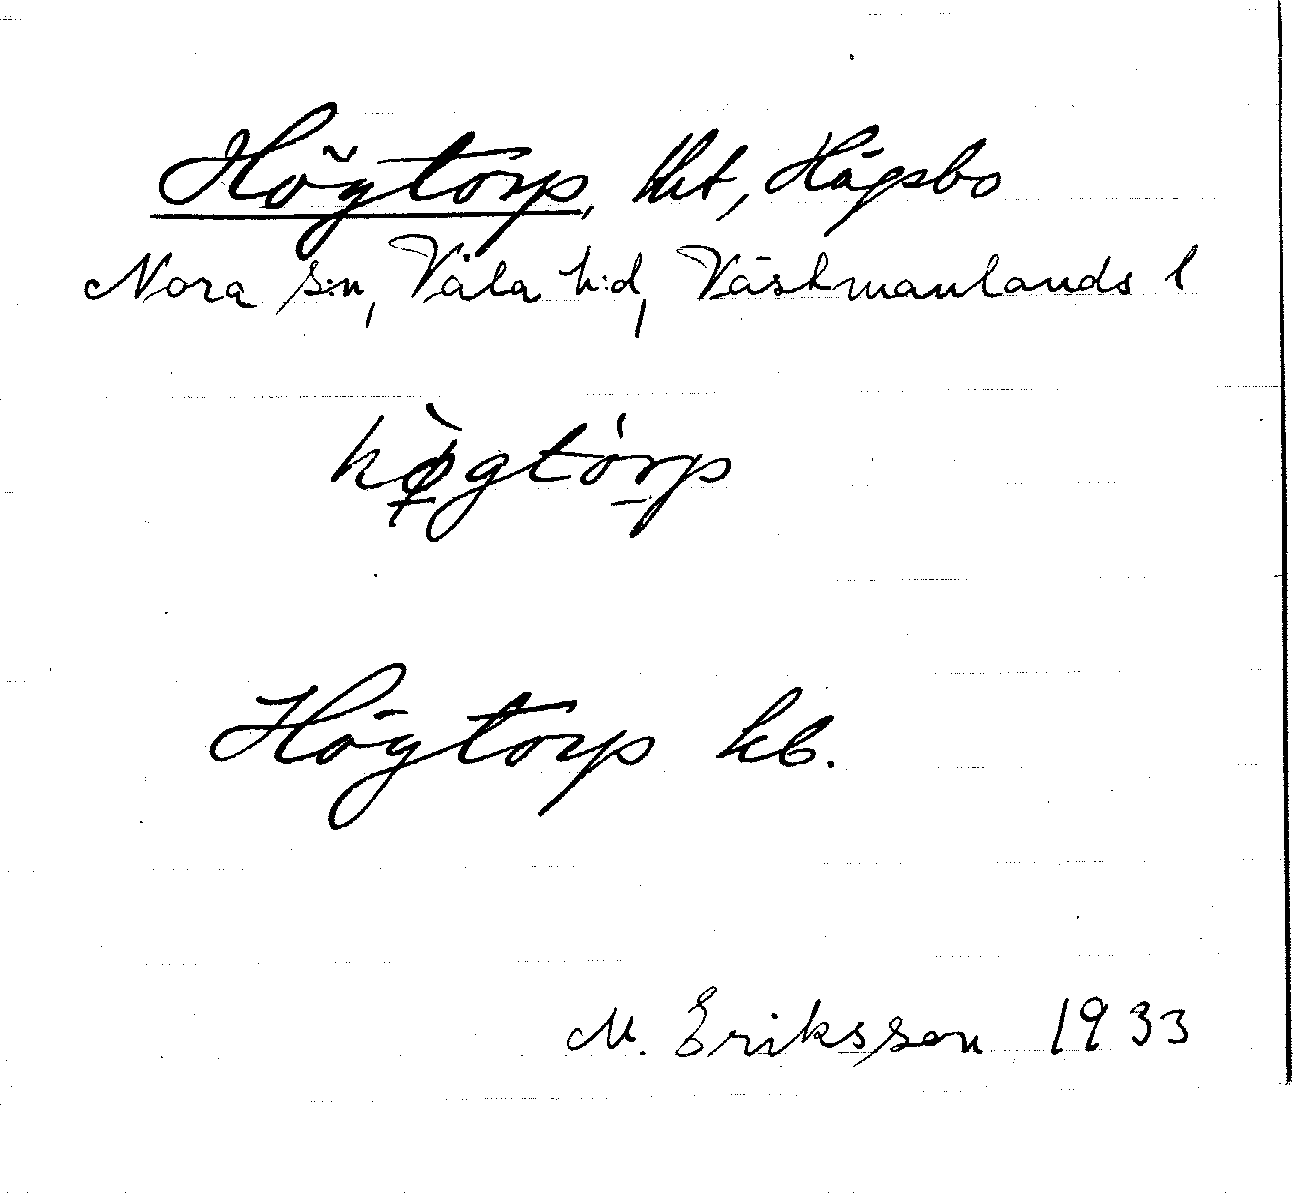 Högtorp, lht, Högsbo
Nora s:n, Våla h:d, Västmanlands l
hø̀gtórp
Högtorp kb.
M. Eriksson 1933